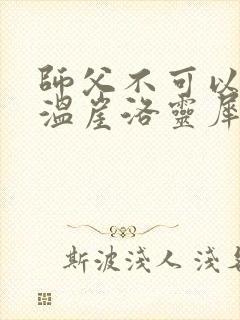 師父不可以
溫崖洛靈犀
斯波淺人 淺